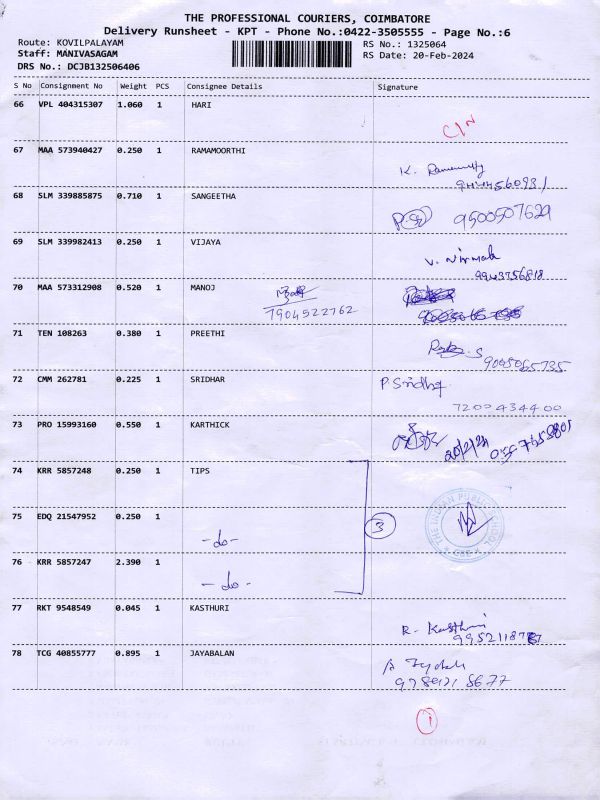 THE PROFESSIONAL COURIERS, COIMBATORE
Delivery Runsheet - KPT - Phone No.:0422-3505555 - Page No.:6
Route: KOVILPALAYAM
Staff: MANIVASAGAM
DRS No.: DCJB132506406
RS No.: 1325064
RS Date: 20-Feb-2024
S No Consignment No Weight PCS Consignee Details Signature
66 VPL 404315307 1.060 1 HARI
C/N
67 MAA 573940427 0.250 1 RAMAMOORTHI
K.
68 SLM 339885875 0.710 1 SANGEETHA
9500507629
69 SLM 339982413 0.250 1 VIJAYA
V. Nirmala
9943756818
70 MAA 573312908 0.520 1 MANOJ
7904522762
71 TEN 108263 0.380 1 PREETHI
9005065735
72 CMM 262781 0.225 1 SRIDHAR
P. Sridhar
7200434400
73 PRO 15993160 0.550 1 KARTHICK
20/2/24
74 KRR 5857248 0.250 1 TIPS
75 EDQ 21547952 0.250 1
-do-
3
THE INDIAN PUBLIC SCHOOL
76 KRR 5857247 2.390 1
-do-
77 RKT 9548549 0.045 1 KASTHURI
R. Kasthuri
78 TCG 40855777 0.895 1 JAYABALAN
1